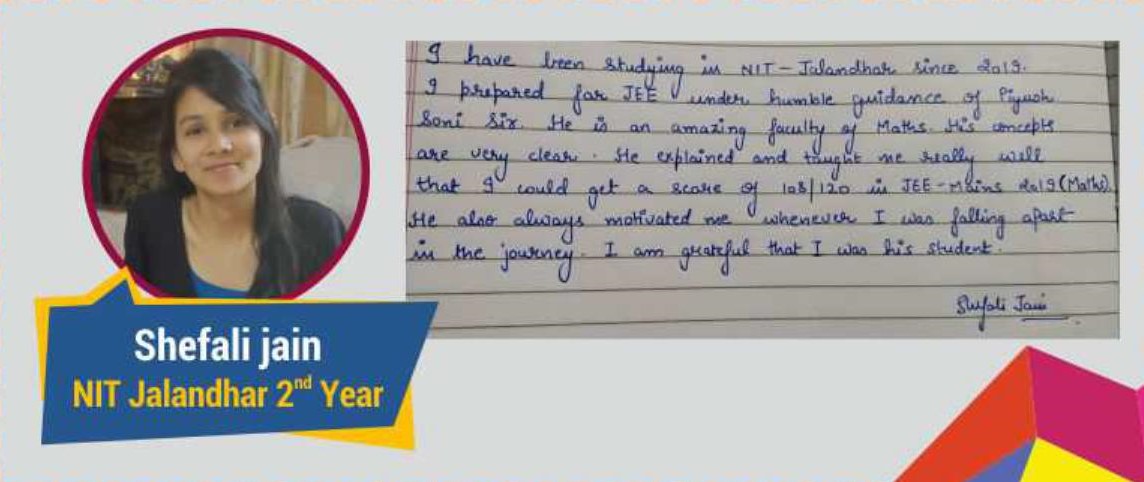 I have been studying in NIT - Jalandhar since 2019.
I prepared for JEE under humble guidance of Piyush
Soni Sir. He is an amazing faculty of Maths. His concepts
are very clear. He explained and taught me really well
that I could get a score of 108/120 in JEE-Mains 2019 (Maths).
He also always motivated me whenever I was falling apart
in the journey. I am grateful that I was his student.
Shefali Jain
Shefali jain
NIT Jalandhar 2nd Year